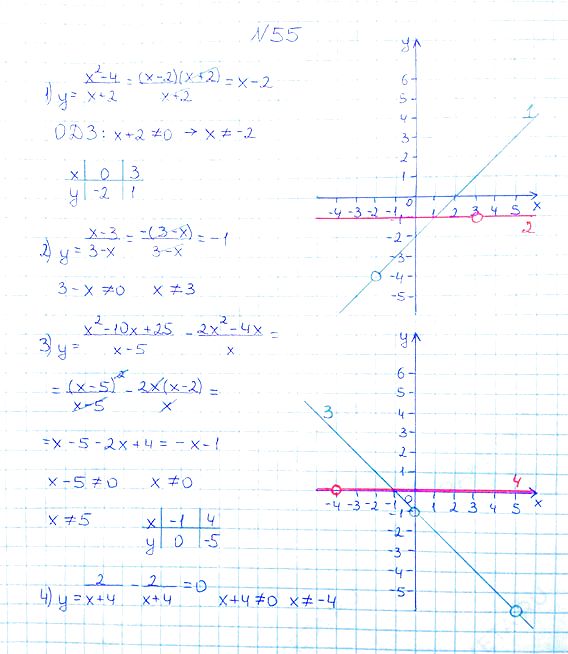 N55
1) y = (x²-4)/(x+2) = ((x-2)(x+2))/(x+2) = x-2
ОДЗ: x+2 ≠ 0 → x ≠ -2
x | 0 | 3
y | -2 | 1
2) y = (x-3)/(3-x) = (-(3-x))/(3-x) = -1
3-x ≠ 0 x ≠ 3
3) y = (x²-10x+25)/(x-5) - (2x²-4x)/x =
= (x-5)²/(x-5) - (2x(x-2))/x =
= x-5-2x+4 = -x-1
x-5 ≠ 0 x ≠ 0
x ≠ 5
x | -1 | 4
y | 0 | -5
4) y = 2/(x+4) - 2/(x+4) = 0 x+4 ≠ 0 x ≠ -4
y
6
5
4
3
2
1
0
-4 -3 -2 -1 1 2 3 4 5 x
-2
-3
-4
-5
1
2
y
6
5
4
3
2
1
0
-4 -3 -2 -1 1 2 3 4 5 x
-1
-2
-3
-4
-5
3
4